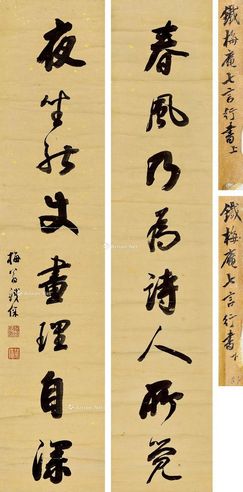 鐵梅庵七言行書上
鐵梅庵七言行書下
春風乃為詩人所覺
夜坐能史畫理自深
梅 鐵保